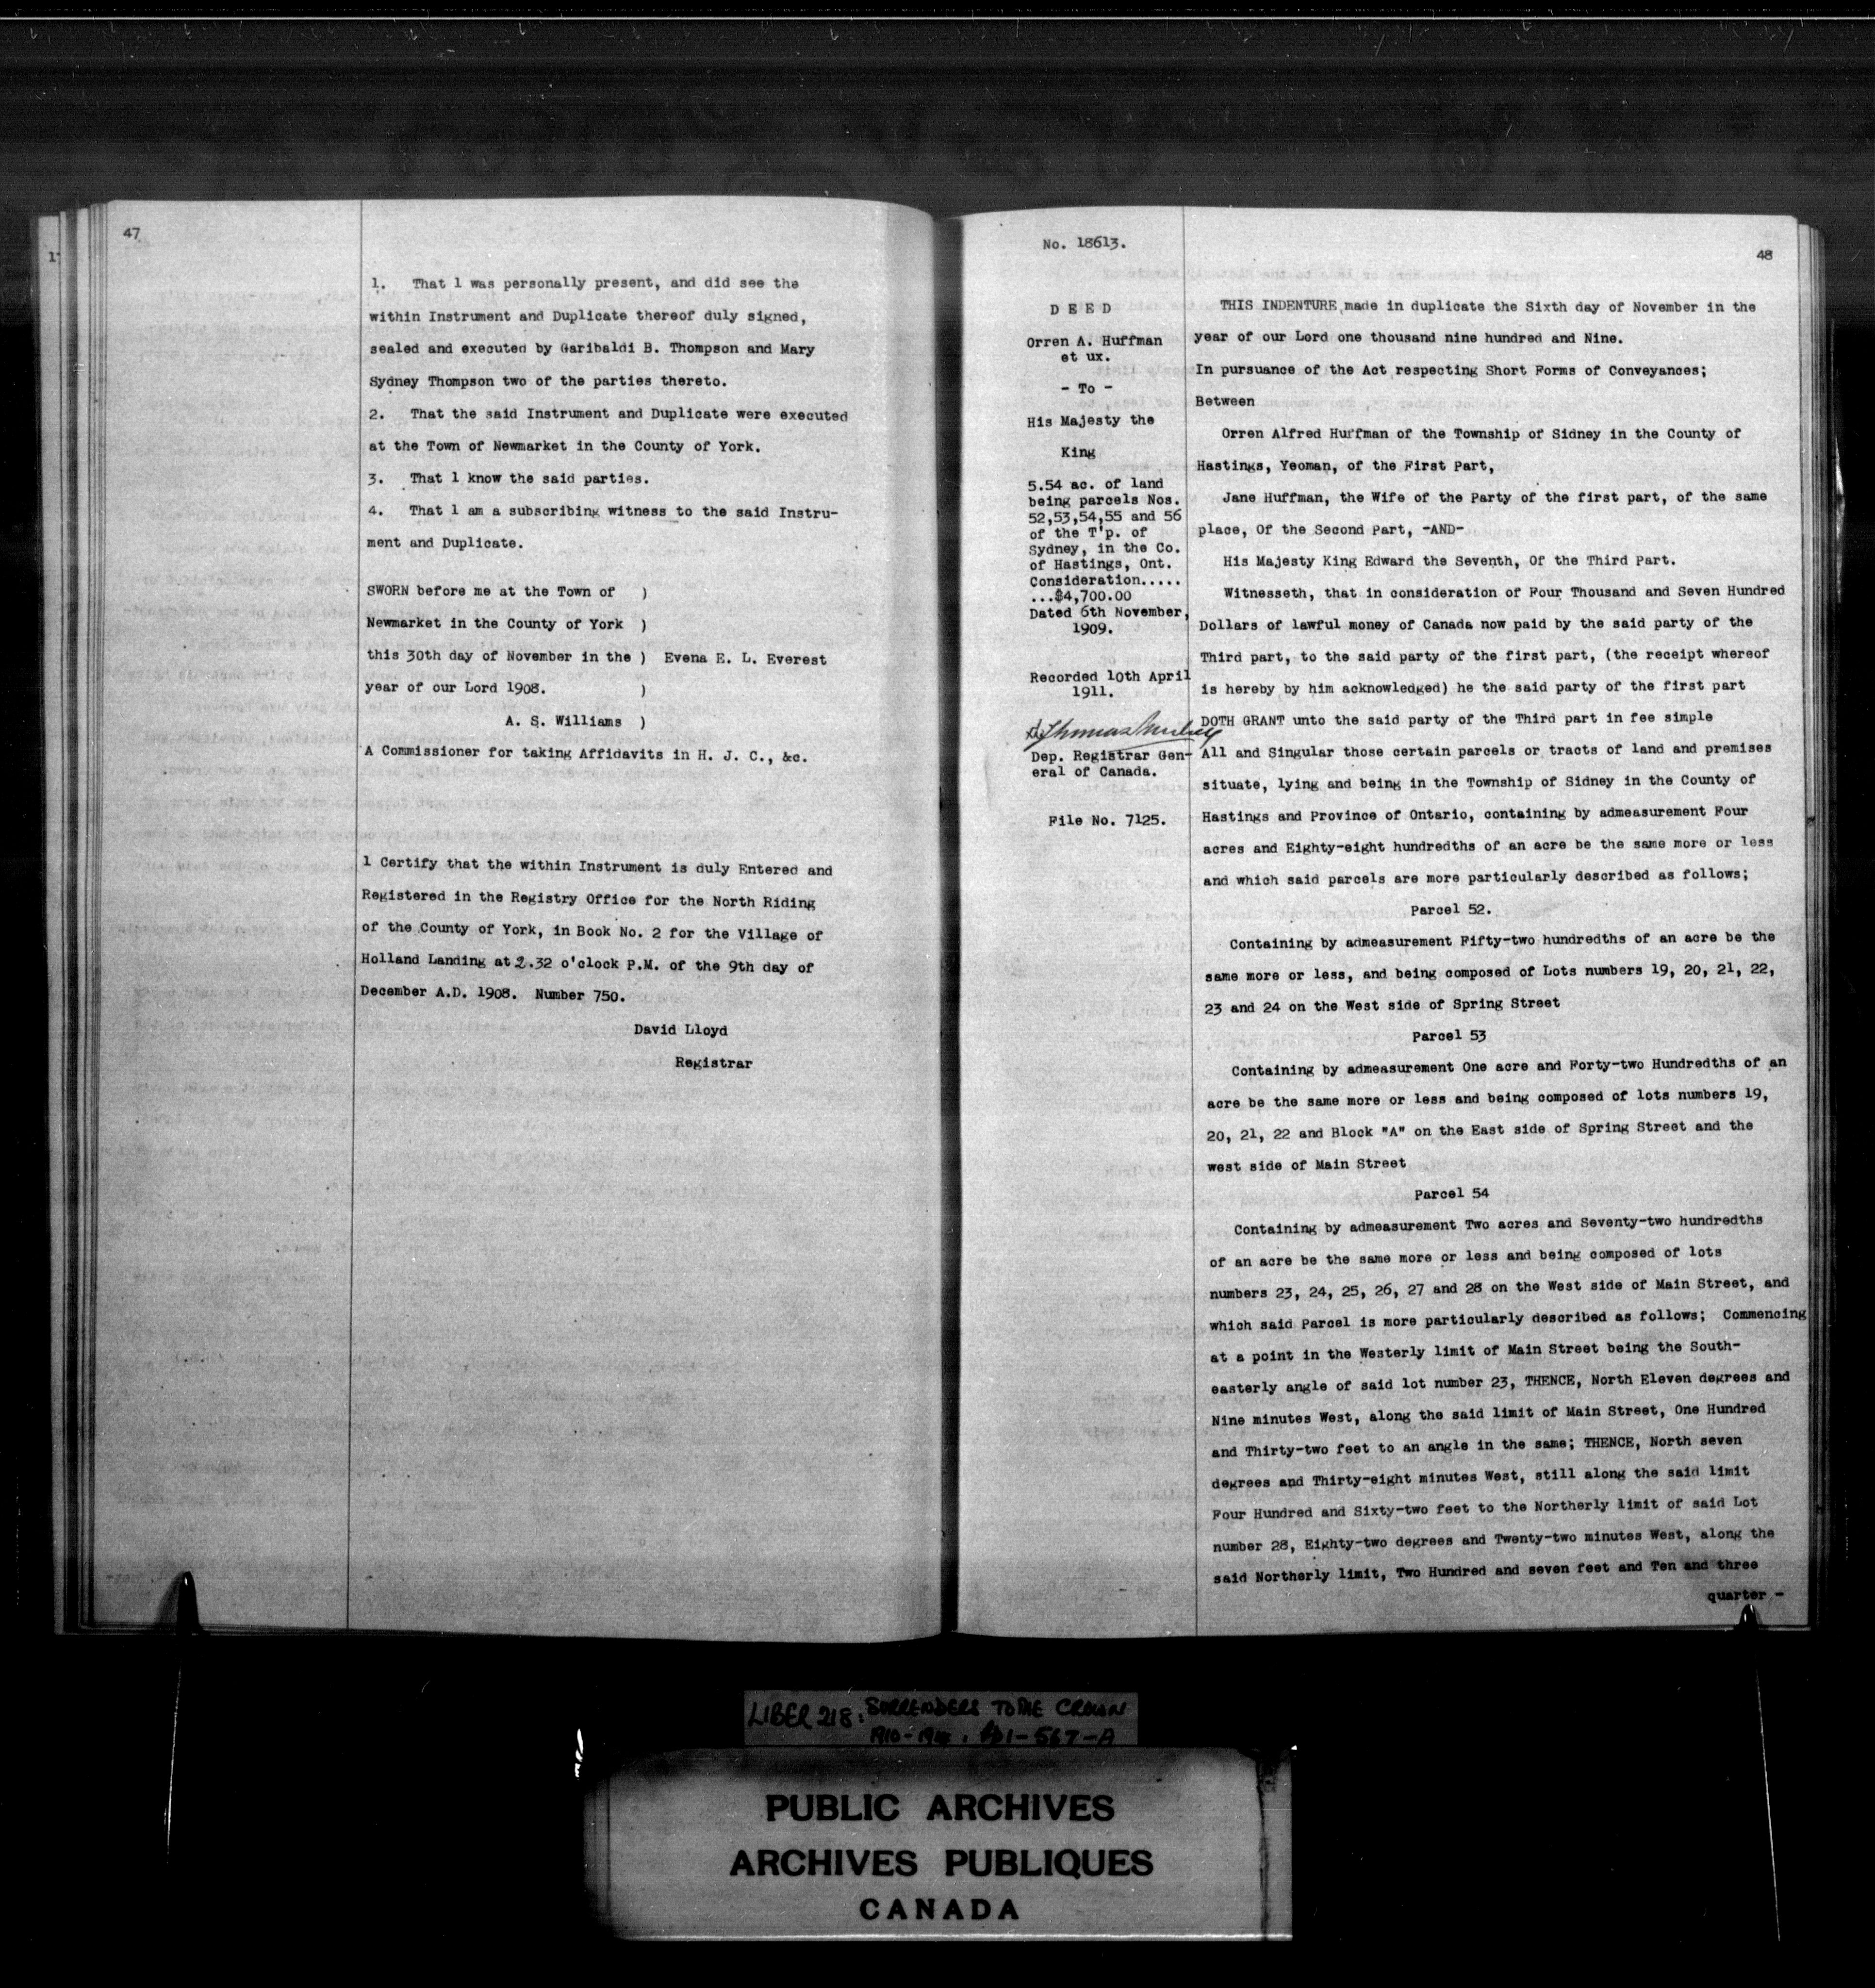 47
1. That 1 was personally present, and did see the
within Instrument and Duplicate thereof duly signed,
sealed and executed by Garibaldi B. Thompson and Mary
Sydney Thompson two of the parties thereto.
2. That the said Instrument and Duplicate were executed
at the Town of Newmarket in the County of York.
3. That 1 know the said parties.
4. That 1 am a subscribing witness to the said Instru-
ment and Duplicate.
SWORN before me at the Town of )
Newmarket in the County of York )
this 30th day of November in the ) Evena E. L. Everest
year of our Lord 1908. )
A. S. Williams )
A Commissioner for taking Affidavits in H. J. C., &c.
1 Certify that the within Instrument is duly Entered and
Registered in the Registry Office for the North Riding
of the County of York, in Book No. 2 for the Village of
Holland Landing at 2.32 o'clock P.M. of the 9th day of
December A.D. 1908. Number 750.
David Lloyd
Registrar
No. 18613.
48
D E E D
Orren A. Huffman
et ux.
- To -
His Majesty the
King
5.54 ac. of land
being parcels Nos.
52,53,54,55 and 56
of the T'p. of
Sydney, in the Co.
of Hastings, Ont.
Consideration.....
...$4,700.00
Dated 6th November,
1909.
Recorded 10th April
1911.
Dep. Registrar Gen-
eral of Canada.
File No. 7125.
THIS INDENTURE made in duplicate the Sixth day of November in the
year of our Lord one thousand nine hundred and Nine.
In pursuance of the Act respecting Short Forms of Conveyances;
Between
Orren Alfred Huffman of the Township of Sidney in the County of
Hastings, Yeoman, of the First Part,
Jane Huffman, the Wife of the Party of the first part, of the same
place, Of the Second Part, -AND-
His Majesty King Edward the Seventh, Of the Third Part.
Witnesseth, that in consideration of Four Thousand and Seven Hundred
Dollars of lawful money of Canada now paid by the said party of the
Third part, to the said party of the first part, (the receipt whereof
is hereby by him acknowledged) he the said party of the first part
DOTH GRANT unto the said party of the Third part in fee simple
All and Singular those certain parcels or tracts of land and premises
situate, lying and being in the Township of Sidney in the County of
Hastings and Province of Ontario, containing by admeasurement Four
acres and Eighty-eight hundredths of an acre be the same more or less
and which said parcels are more particularly described as follows;
Parcel 52.
Containing by admeasurement Fifty-two hundredths of an acre be the
same more or less, and being composed of Lots numbers 19, 20, 21, 22,
23 and 24 on the West side of Spring Street
Parcel 53
Containing by admeasurement One acre and Forty-two Hundredths of an
acre be the same more or less and being composed of lots numbers 19,
20, 21, 22 and Block "A" on the East side of Spring Street and the
west side of Main Street
Parcel 54
Containing by admeasurement Two acres and Seventy-two hundredths
of an acre be the same more or less and being composed of lots
numbers 23, 24, 25, 26, 27 and 28 on the West side of Main Street, and
which said Parcel is more particularly described as follows; Commencing
at a point in the Westerly limit of Main Street being the South-
easterly angle of said lot number 23, THENCE, North Eleven degrees and
Nine minutes West, along the said limit of Main Street, One Hundred
and Thirty-two feet to an angle in the same; THENCE, North seven
degrees and Thirty-eight minutes West, still along the said limit
Four Hundred and Sixty-two feet to the Northerly limit of said Lot
number 28, Eighty-two degrees and Twenty-two minutes West, along the
said Northerly limit, Two Hundred and seven feet and Ten and three
quarter -
LIBER 218: SURRENDERS TO THE CROWN
PUBLIC ARCHIVES
ARCHIVES PUBLIQUES
CANADA